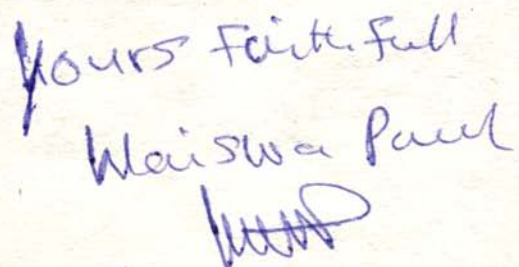 Yours Faithfull
Waiswa Paul